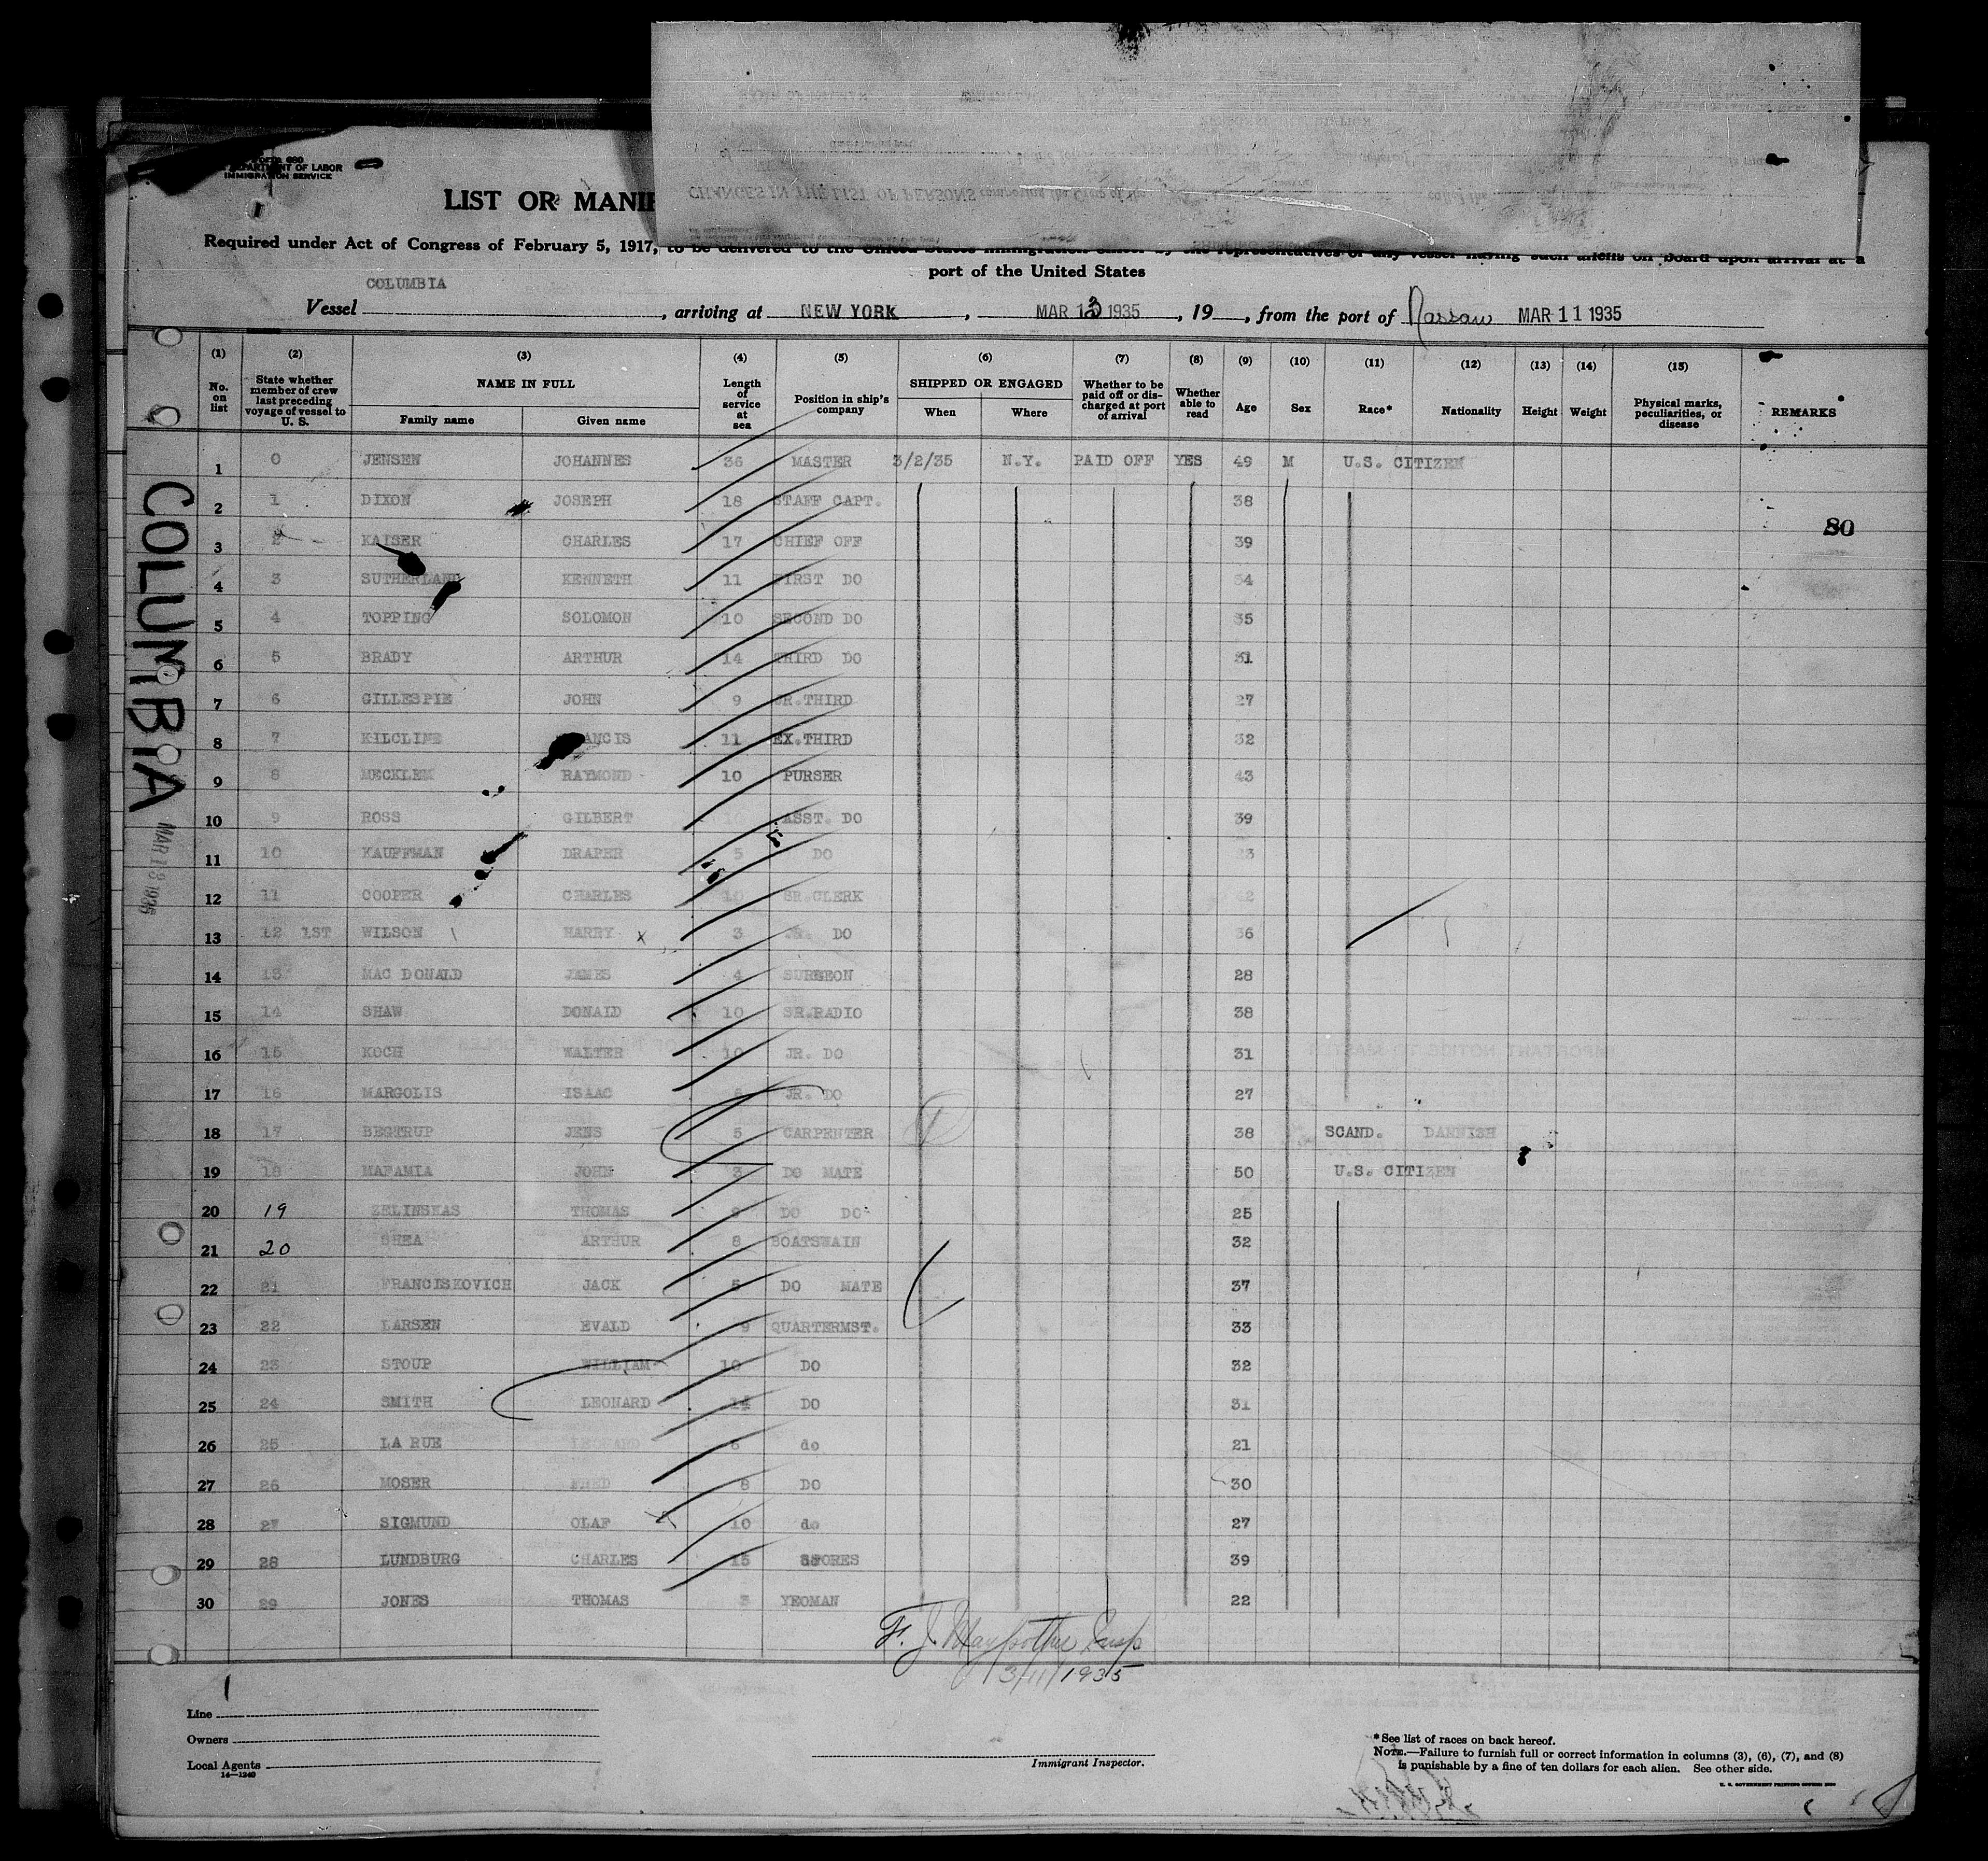 Form 680
DEPARTMENT OF LABOR
IMMIGRATION SERVICE
CHANGES IN THE LIST OF PERSONS composing the Crew of the
LIST OR MANIF
Required under Act of Congress of February 5, 1917, to be delivered to the United States immigration officer by the representatives of any vessel having such aliens on board upon arrival at a
port of the United States
Vessel COLUMBIA, arriving at NEW YORK, MAR 13 1935, 19, from the port of Nassau MAR 11 1935
(1) (2) (3) (4) (5) (6) (7) (8) (9) (10) (11) (12) (13) (14) (15)
No. on list State whether member of crew last preceding voyage of vessel to U. S. NAME IN FULL Family name Given name Length of service at sea Position in ship's company SHIPPED OR ENGAGED When Where Whether to be paid off or discharged at port of arrival Whether able to read Age Sex Race* Nationality Height Weight Physical marks, peculiarities, or disease REMARKS
1 0 JENSEN JOHANNES 36 MASTER 3/2/35 N.Y. PAID OFF YES 49 M U.S. CITIZEN
2 1 DIXON JOSEPH 18 STAFF CAPT. 38
80
3 2 KAISER CHARLES 17 CHIEF OFF 39
4 3 SUTHERLAND KENNETH 11 FIRST DO 34
5 4 TOPPING SOLOMON 10 SECOND DO 35
6 5 BRADY ARTHUR 14 THIRD DO 31
7 6 GILLESPIE JOHN 9 JR.THIRD 27
8 7 KILCLINE ANCIS 11 EX.THIRD 32
9 8 MECKLEM RAYMOND 10 PURSER 43
10 9 ROSS GILBERT 10 ASST. DO 39
11 10 KAUFFMAN DRAPER 5 DO 23
12 11 COOPER CHARLES 10 SR.CLERK 42
13 12 1ST WILSON HARRY x 3 JR. DO 36
14 13 MAC DONALD JAMES 4 SURGEON 28
15 14 SHAW DONALD 10 SR.RADIO 38
16 15 KOCH WALTER 10 JR. DO 31
17 16 MARGOLIS ISAAC JR. DO 27
18 17 BEGTRUP JENS 5 CARPENTER 38 SCAND. DANNISH
19 18 MAFAMIA JOHN 3 DO MATE 50 U.S. CITIZEN
20 19 ZELINSKAS THOMAS DO DO 25
21 20 SHEA ARTHUR 8 BOATSWAIN 32
22 21 FRANCISKOVICH JACK 5 DO MATE 37
23 22 LARSEN EVALD 9 QUARTERMST. 33
24 23 STOUP WILLIAM 10 DO 32
25 24 SMITH LEONARD 14 DO 31
26 25 LA RUE LEONARD 6 do 21
27 26 MOSER FRED 8 DO 30
28 27 SIGMUND OLAF 10 do 27
29 28 LUNDBURG CHARLES 15 STORES 39
30 29 JONES THOMAS 3 YEOMAN 22
COLUMBIA
MAR 13 1935
F. J. Insp
3/11/1935
Line
Owners
Local Agents
14—1240
Immigrant Inspector.
*See list of races on back hereof.
NOTE.—Failure to furnish full or correct information in columns (3), (6), (7), and (8)
is punishable by a fine of ten dollars for each alien. See other side.